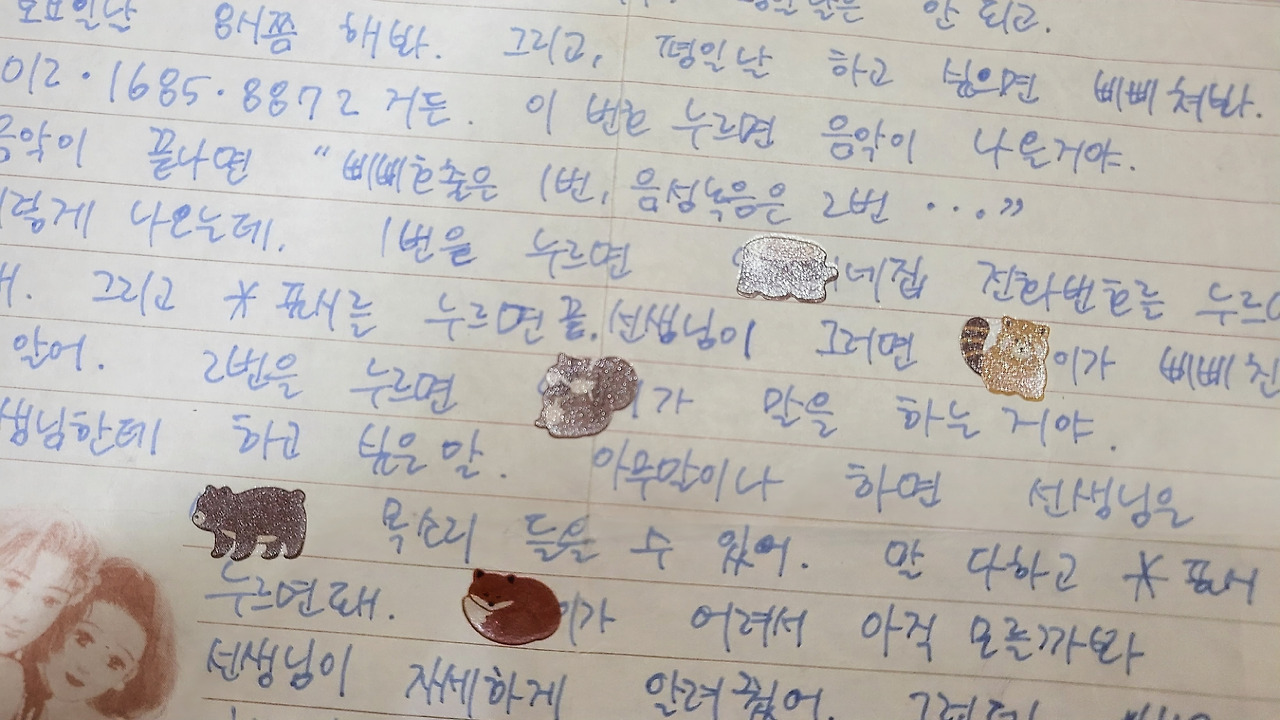 안 되고.
토요일날 8시쯤 해봐. 그리고, 평일날 하고 싶으면 삐삐쳐봐.
012·1685·8872 거든. 이 번호 누르면 음악이 나올거야.
음악이 끝나면 "삐삐호출은 1번, 음성녹음은 2번 ...."
이렇게 나오는데. 1번을 누르면 네집 전화번호를 누르
. 그리고 * 표시를 누르면 끝. 선생님이 그러면 이가 삐삐친
알어. 2번을 누르면 이가 말을 하는 거야.
선생님한테 하고 싶은 말. 아무말이나 하면 선생님은
목소리 들을 수 있어. 말 다하고 * 표시
누르면 돼. 이가 어려서 아직 모를까봐
선생님이 자세하게 알려줬어. 그런데